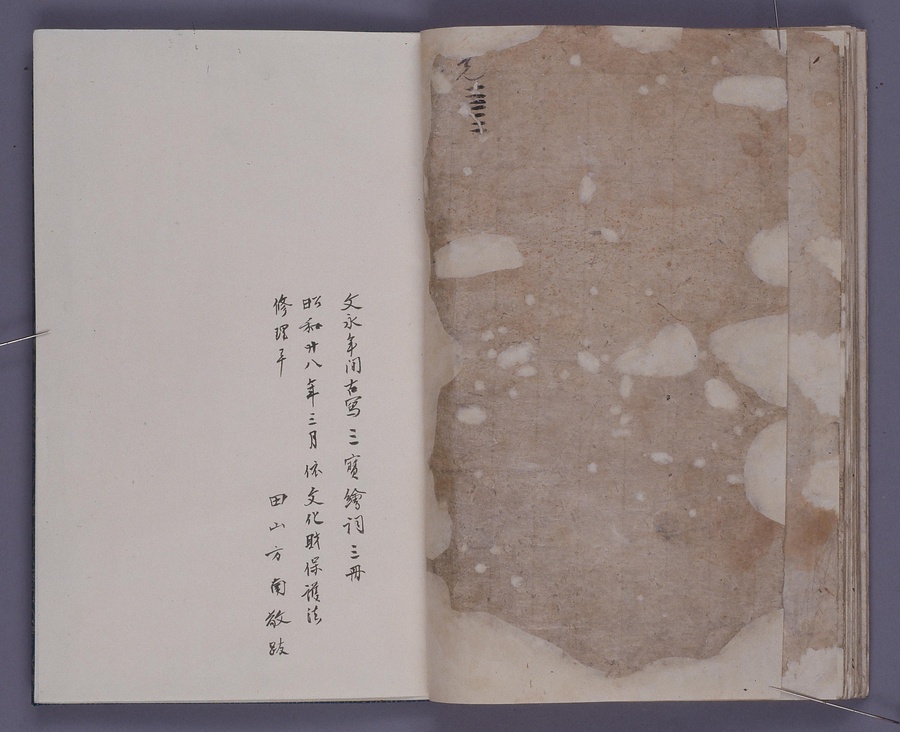 文永年间古写三寳繪词三冊
昭和廿八年三月依文化財保護法
修理畢
田山方南敬跋